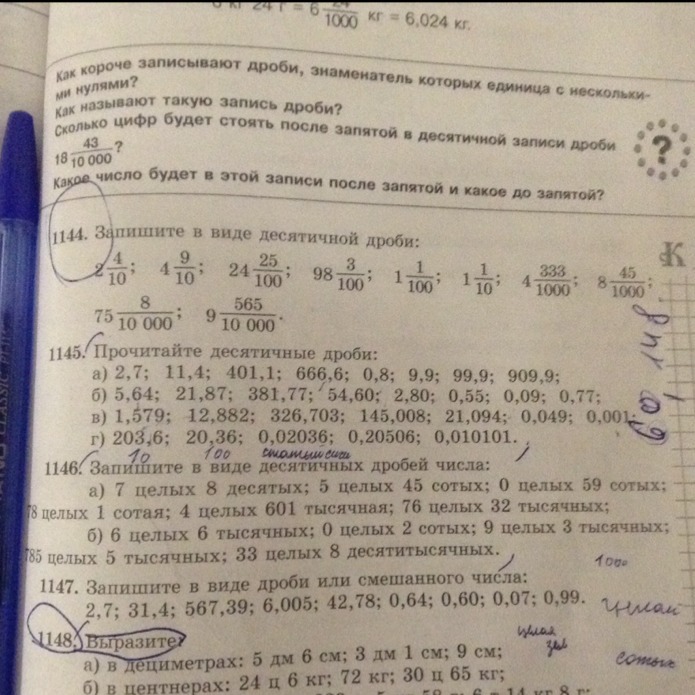 6 кг 24 г = 6 24/1000 кг = 6,024 кг.
Как короче записывают дроби, знаменатель которых единица с нескольки-
ми нулями?
Как называют такую запись дроби?
Сколько цифр будет стоять после запятой в десятичной записи дроби
18 43/10 000?
?
Какое число будет в этой записи после запятой и какое до запятой?
1144. Запишите в виде десятичной дроби:
2 4/10; 4 9/10; 24 25/100; 98 3/100; 1 1/100; 1 1/10; 4 333/1000; 8 45/1000;
75 8/10 000; 9 565/10 000.
1145. Прочитайте десятичные дроби:
а) 2,7; 11,4; 401,1; 666,6; 0,8; 9,9; 99,9; 909,9;
б) 5,64; 21,87; 381,77; 54,60; 2,80; 0,55; 0,09; 0,77;
в) 1,579; 12,882; 326,703; 145,008; 21,094; 0,049; 0,001;
г) 203,6; 20,36; 0,02036; 0,20506; 0,010101.
10 100
1146. Запишите в виде десятичных дробей числа:
а) 7 целых 8 десятых; 5 целых 45 сотых; 0 целых 59 сотых;
78 целых 1 сотая; 4 целых 601 тысячная; 76 целых 32 тысячных;
б) 6 целых 6 тысячных; 0 целых 2 сотых; 9 целых 3 тысячных;
785 целых 5 тысячных; 33 целых 8 десятитысячных.
1000
1147. Запишите в виде дроби или смешанного числа:
2,7; 31,4; 567,39; 6,005; 42,78; 0,64; 0,60; 0,07; 0,99.
1148. Выразите:
целая
сотых
а) в дециметрах: 5 дм 6 см; 3 дм 1 см; 9 см;
б) в центнерах: 24 ц 6 кг; 72 кг; 30 ц 65 кг;